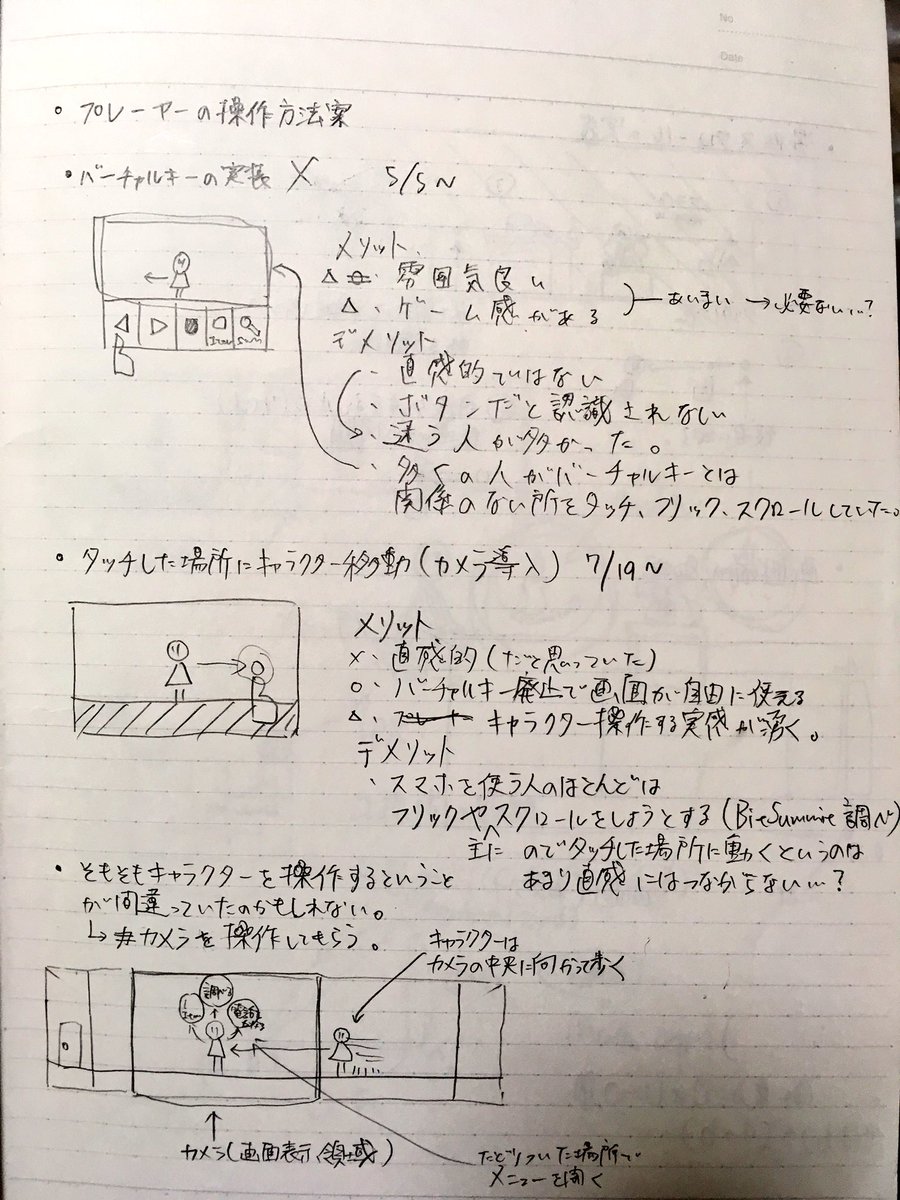 No
Date
・プレーヤーの操作方法案
・バーチャルキーの実装 X 5/5~
メリット
△・雰囲気良い
△・ゲーム感がある
あいまい → 必要ない…?
デメリット
・直感的ではない
・ボタンだと認識されない
・迷う人が多かった。
・多くの人がバーチャルキーとは
関係のない所をタッチ、フリック、スクロールしていた。
Item
・タッチした場所にキャラクター移動(カメラ導入) 7/19~
メリット
×・直感的(だと思っていた)
○・バーチャルキー廃止で画面が自由に使える
△・キャラクター操作する実感が湧く。
デメリット
・スマホを使う人のほとんどは
フリックやスクロールをしようとする(BitSummit調べ)
主に
のでタッチした場所に動くというのは
あまり直感にはつながらない…?
・そもそもキャラクターを操作するということ
が間違っていたのかもしれない。
↳カメラを操作してもらう。
キャラクターは
カメラの中央に向かって歩く
Item
調べる
電話を
カメラ(画面表示領域)
たどりついた場所で
メニューを開く